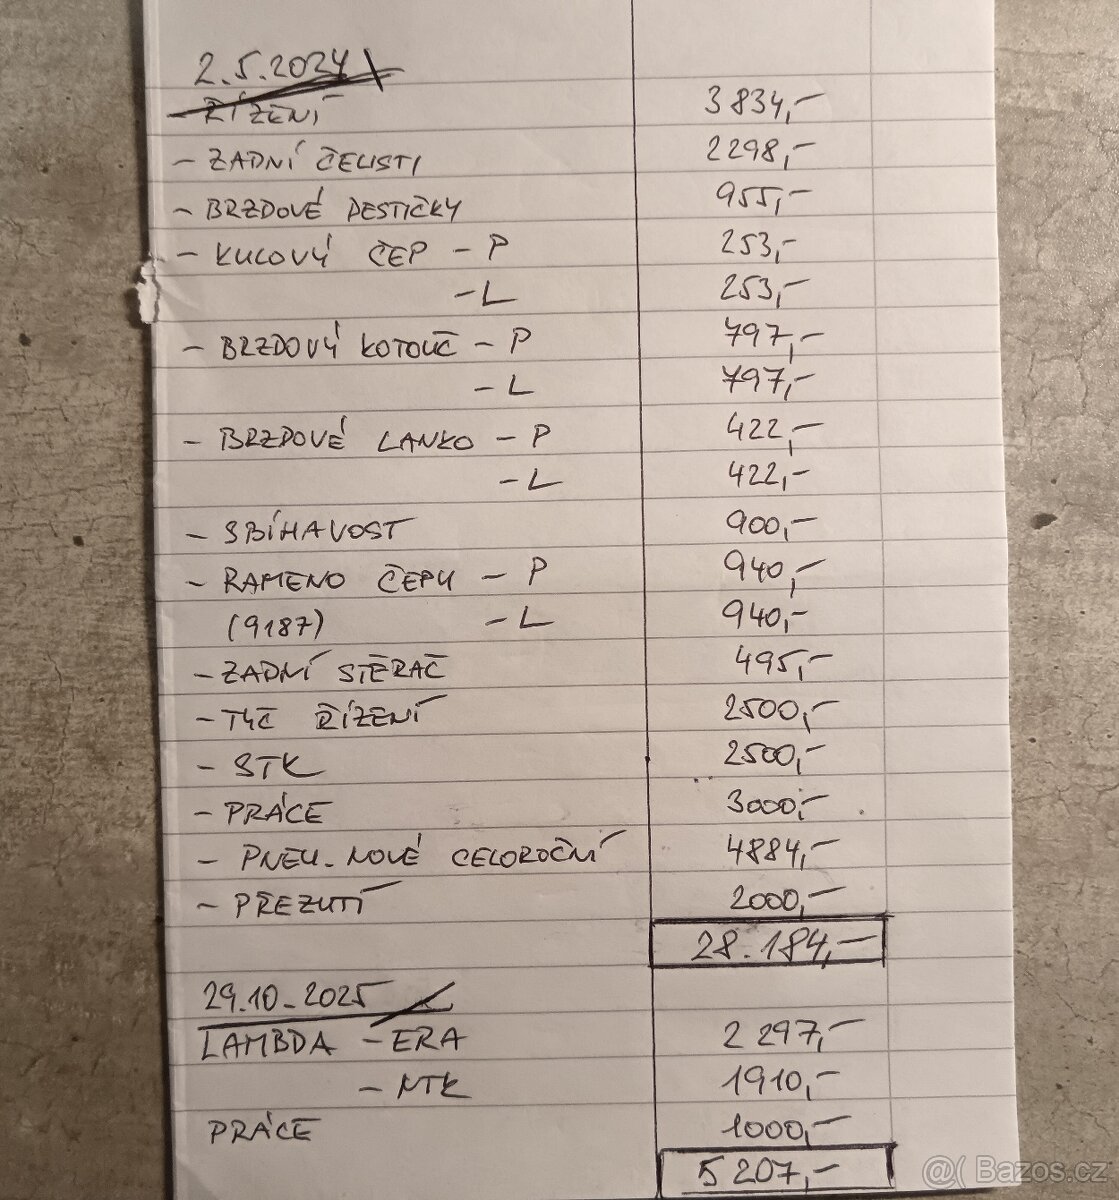 2.5.2024
- ŘÍZENÍ 3834,-
- ZADNÍ ČELISTI 2298,-
- BRZDOVÉ DESTIČKY 955,-
- KULOVÝ ČEP - P 253,-
- L 253,-
- BRZDOVÝ KOTOUČ - P 797,-
- L 797,-
- BRZDOVÉ LANKO - P 422,-
- L 422,-
- SBÍHAVOST 900,-
- RAMENO ČEPU - P 940,-
(9187) - L 940,-
- ZADNÍ STĚRAČ 495,-
- TYČ ŘÍZENÍ 2500,-
- STK 2500,-
- PRÁCE 3000,-
- PNEU. NOVÉ CELOROČNÍ 4884,-
- PŘEZUTÍ 2000,-
28.184,-
29.10.2025
LAMBDA - ERA 2 297,-
- NTK 1910,-
PRÁCE 1000,-
5 207,-
@( Bazos.cz